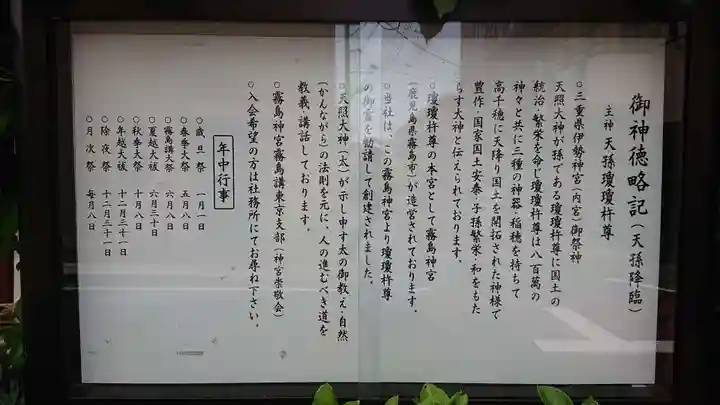 御神徳略記（天孫降臨）
主神 天孫瓊瓊杵尊
○三重県伊勢神宮（内宮）御祭神
天照大神が孫である瓊瓊杵尊に国土の
統治・繁栄を命じ瓊瓊杵尊は八百萬の
神々と共に三種の神器・稲穂を持ちて
高千穂に天降り国土を開拓された神様で
豊作・国家国土安泰・子孫繁栄・和をもた
らす大神と伝えられております。
○瓊瓊杵尊の本宮として霧島神宮
（鹿児島県霧島市）が造営されております。
○当社は、この霧島神宮より瓊瓊杵尊
の御霊を勧請して創建されました。
○天照大神（太）が示し申す太の御教え・自然
（かんながら）の法則を元に、人の進むべき道を
教義・講話しております。
○霧島神宮霧島講東京支部（神宮崇敬会）
○入会希望の方は社務所にてお尋ね下さい。
年中行事
○歳旦祭 一月一日
○春季大祭 五月八日
○霧島講大祭 六月八日
○夏越大祓 六月三十日
○秋季大祭 十月八日
○年越大祓 十二月三十一日
○除夜祭 十二月三十一日
○月次祭 毎月八日